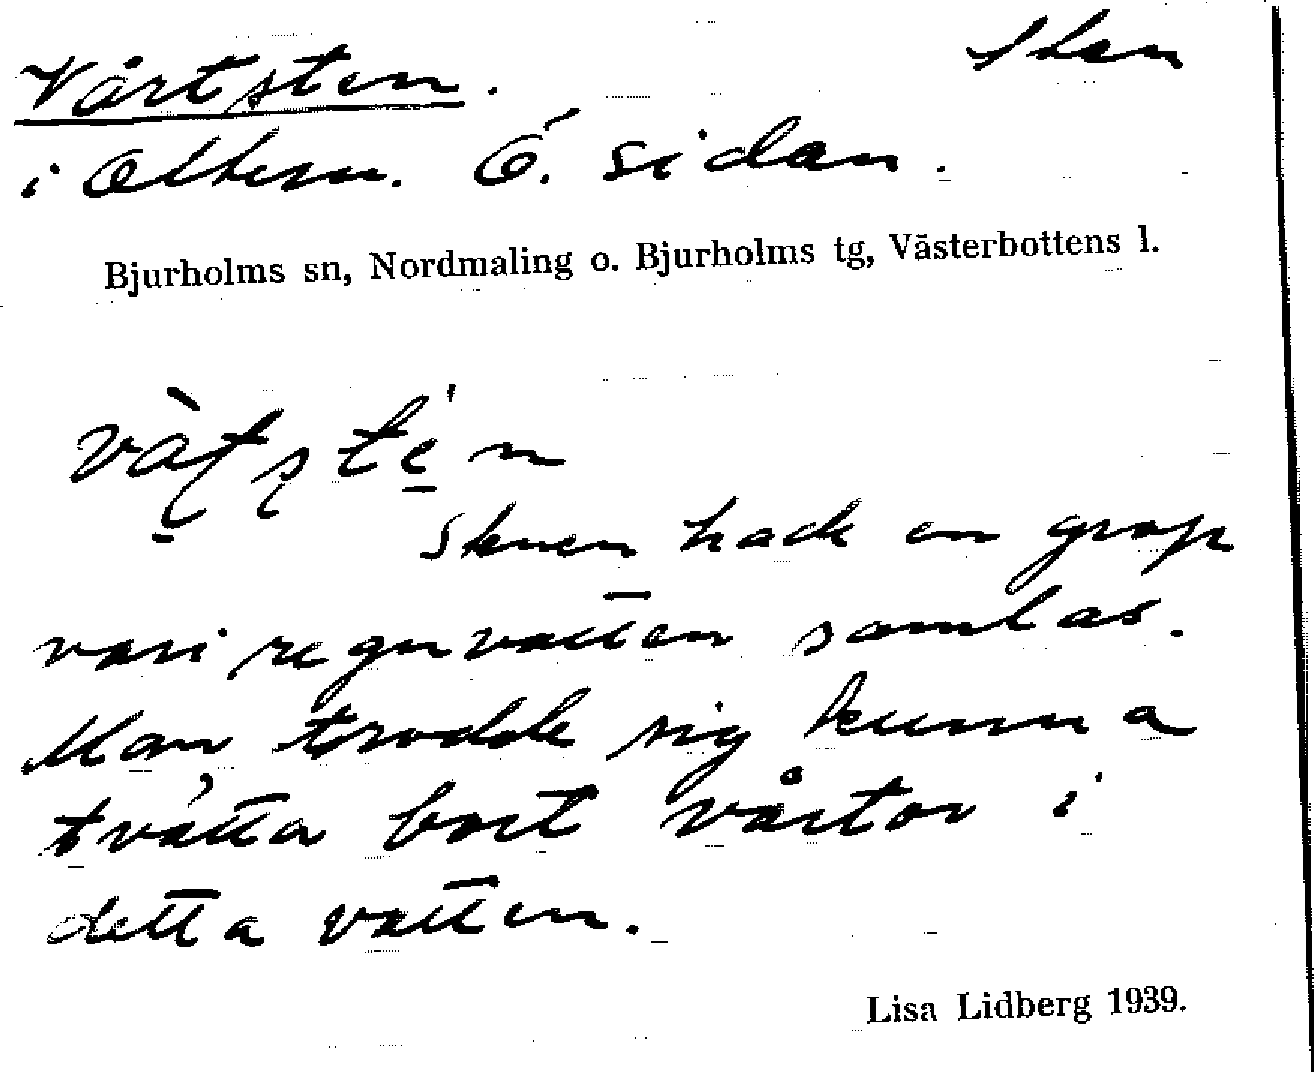 Vårtsten. Sten
i Ottern. Ö. sidan.
Bjurholms sn, Nordmaling o. Bjurholms tg, Västerbottens l.
Stenen hade en grop
vari regnvatten samlas.
Man trodde sig kunna
tvätta bort vårtor i
detta vatten.
Lisa Lidberg 1939.